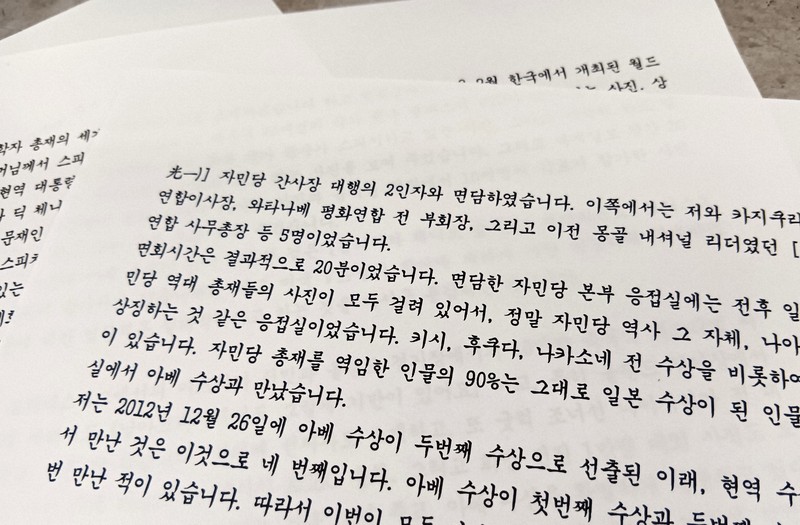 2월 한국에서 개최된 월드
사진, 상
학자 총재의 세계
머님께서 스피
현역 대통령
딕 체니
문재인
스피치
있는
光一)] 자민당 간사장 대행의 2인자와 면담하였습니다. 이쪽에서는 저와 카지쿠리
연합이사장, 와타나베 평화연합 전 부회장, 그리고 이전 몽골 내셔널 리더였던 [
연합 사무총장 등 5명이었습니다.
면회시간은 결과적으로 20분이었습니다. 면담한 자민당 본부 응접실에는 전후 일
민당 역대 총재들의 사진이 모두 걸려 있어서, 정말 자민당 역사 그 자체, 나아
상징하는 것 같은 응접실이었습니다. 키시, 후쿠다, 나카소네 전 수상을 비롯하여
이 있습니다. 자민당 총재를 역임한 인물의 90%는 그대로 일본 수상이 된 인물
실에서 아베 수상과 만났습니다.
저는 2012년 12월 26일에 아베 수상이 두번째 수상으로 선출된 이래, 현역 수
서 만난 것은 이것으로 네 번째입니다. 아베 수상이 첫번째 수상과 두번째
번 만난 적이 있습니다. 따라서 이번이 모두